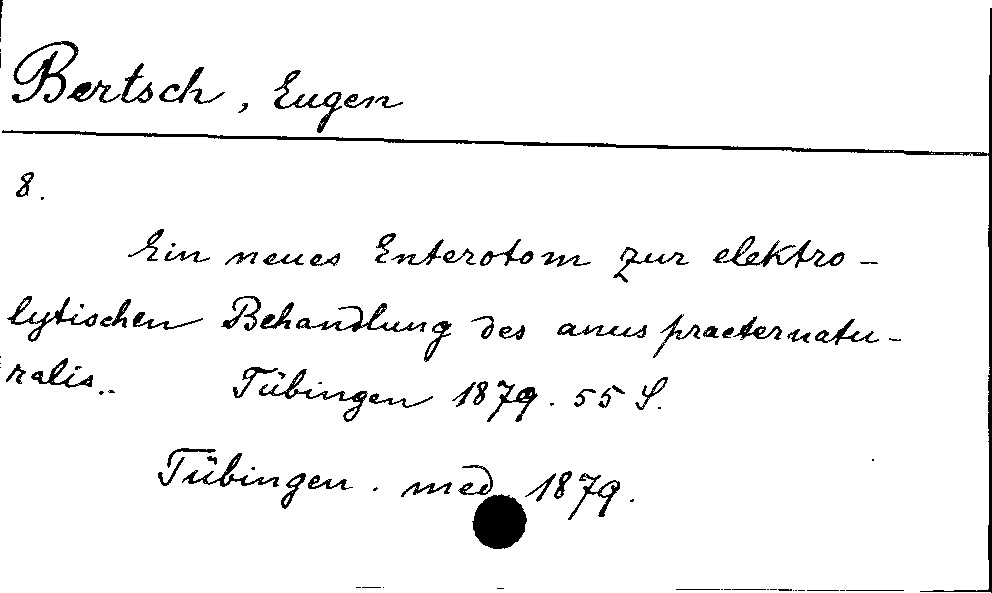 Bertsch, Eugen
8.
Ein neues Enterotom zur elektro-
lytischen Behandlung des anus praeternatu-
ralis.. Tübingen 1879. 55 S.
Tübingen. med 1879.